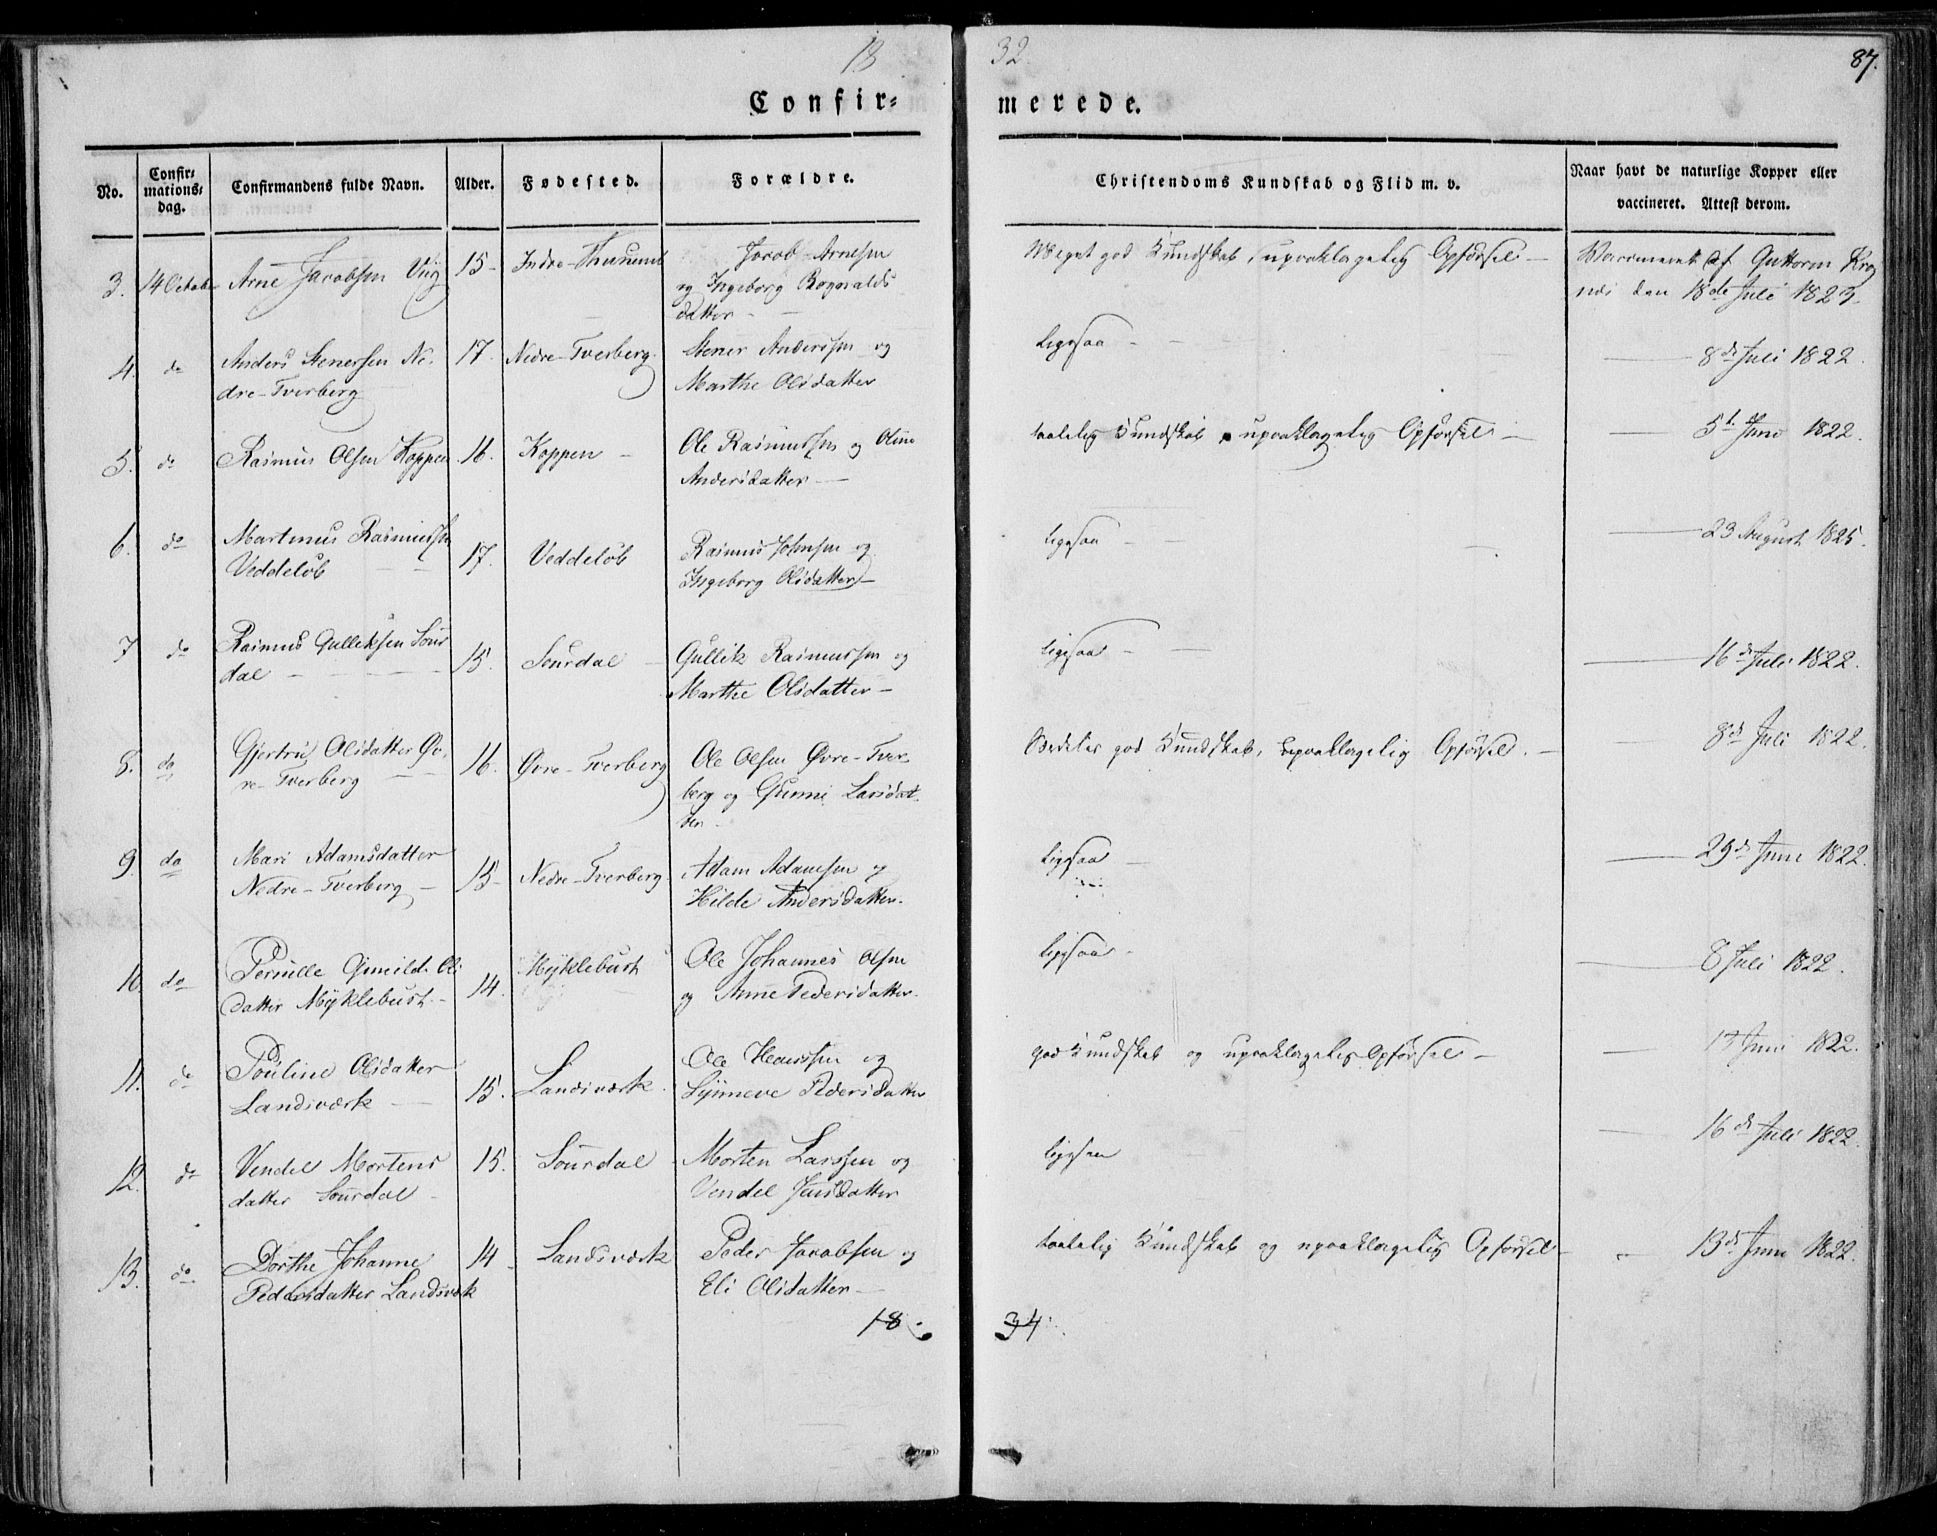 18 32. 87.
Confir= merede.
No. Confir= mations= dag. Confirmandens fulde Navn. Alder. Fødested. Forældre. Christendoms Kundskab og Flid m. v. Naar havt de naturlige Kopper eller vaccineret. Attest derom.
3. 14 Octob Arne Jacobsen Viig 15- Indre- Jacob Arnesen Meget god Kundskab, upaaklagelig Opførsel - Vaccineret af Guttorm
og Ingeborg Rognalds nes den 18de Juli 1823.
datter -
4. do Anders Stenersen Ne- 17. Nedre-Tverberg. Stener Anderssen og Ligesaa - - 8de Juli 1822.
dre-Tverberg Marthe Olsdatter
5. do Rasmus Olsen Koppen 16. Koppen - Ole Rasmussen og Oline taalelig Kundskab, upaaklagelig Opførsel - 5t Juni 1822.
Andersdatter -
6. do Martinus Rasmussen 17. Veddeløb Rasmus Johnsen og Ligesaa - - 23 August 1825.
Veddeløb - - Ingeborg Olsdatter -
7 do Rasmus Gulleksen Sour 15. Sourdal - Gullik Rasmussen og Ligesaa - - 16de Juli 1822.
dal - - - - Marthe Olsdatter -
8. do Gjertru Olsdatter Øv- 16. Øvre-Tverberg Ole Olsen Øvre-Tver god Kundskab, upaaklagelig Opførsel. - 8de Juli 1822.
re-Tverberg - berg og Gunni Larsdat
ter -
9 do Mari Adamsdatter 15- Nedre-Tverberg. Adam Adamsen og Ligesaa - 29de Juni 1822.
Nedre-Tverberg - Hilde Andersdatter.
10 do Pernille Gunild Ols 14. Myklebust Ole Johannes Olsen Ligesaa - 8 Juli 1822.
datter Myklebust - og Anne Pedersdatter.
11. do Pouline Olsdatter 15. Landsværk. Ole Hanssen og god Kundskab og upaaklagelig Opførsel - 13 Juni 1822.
Landsværk - Synneve Pedersdatter
12. do Vendel Mortens 15. Sourdal Morten Larssen og Ligesaa 16de Juli 1822.
datter Sourdal - Vendel Jensdatter
13. do. Dorthe Johanne 14 - Landsværk Peder Jacobsen og taalelig Kundskab og upaaklagelig Opførsel - 13de Juni 1822.
Pedersdatter Landsværk Eli Olsdatter -
18. 34.